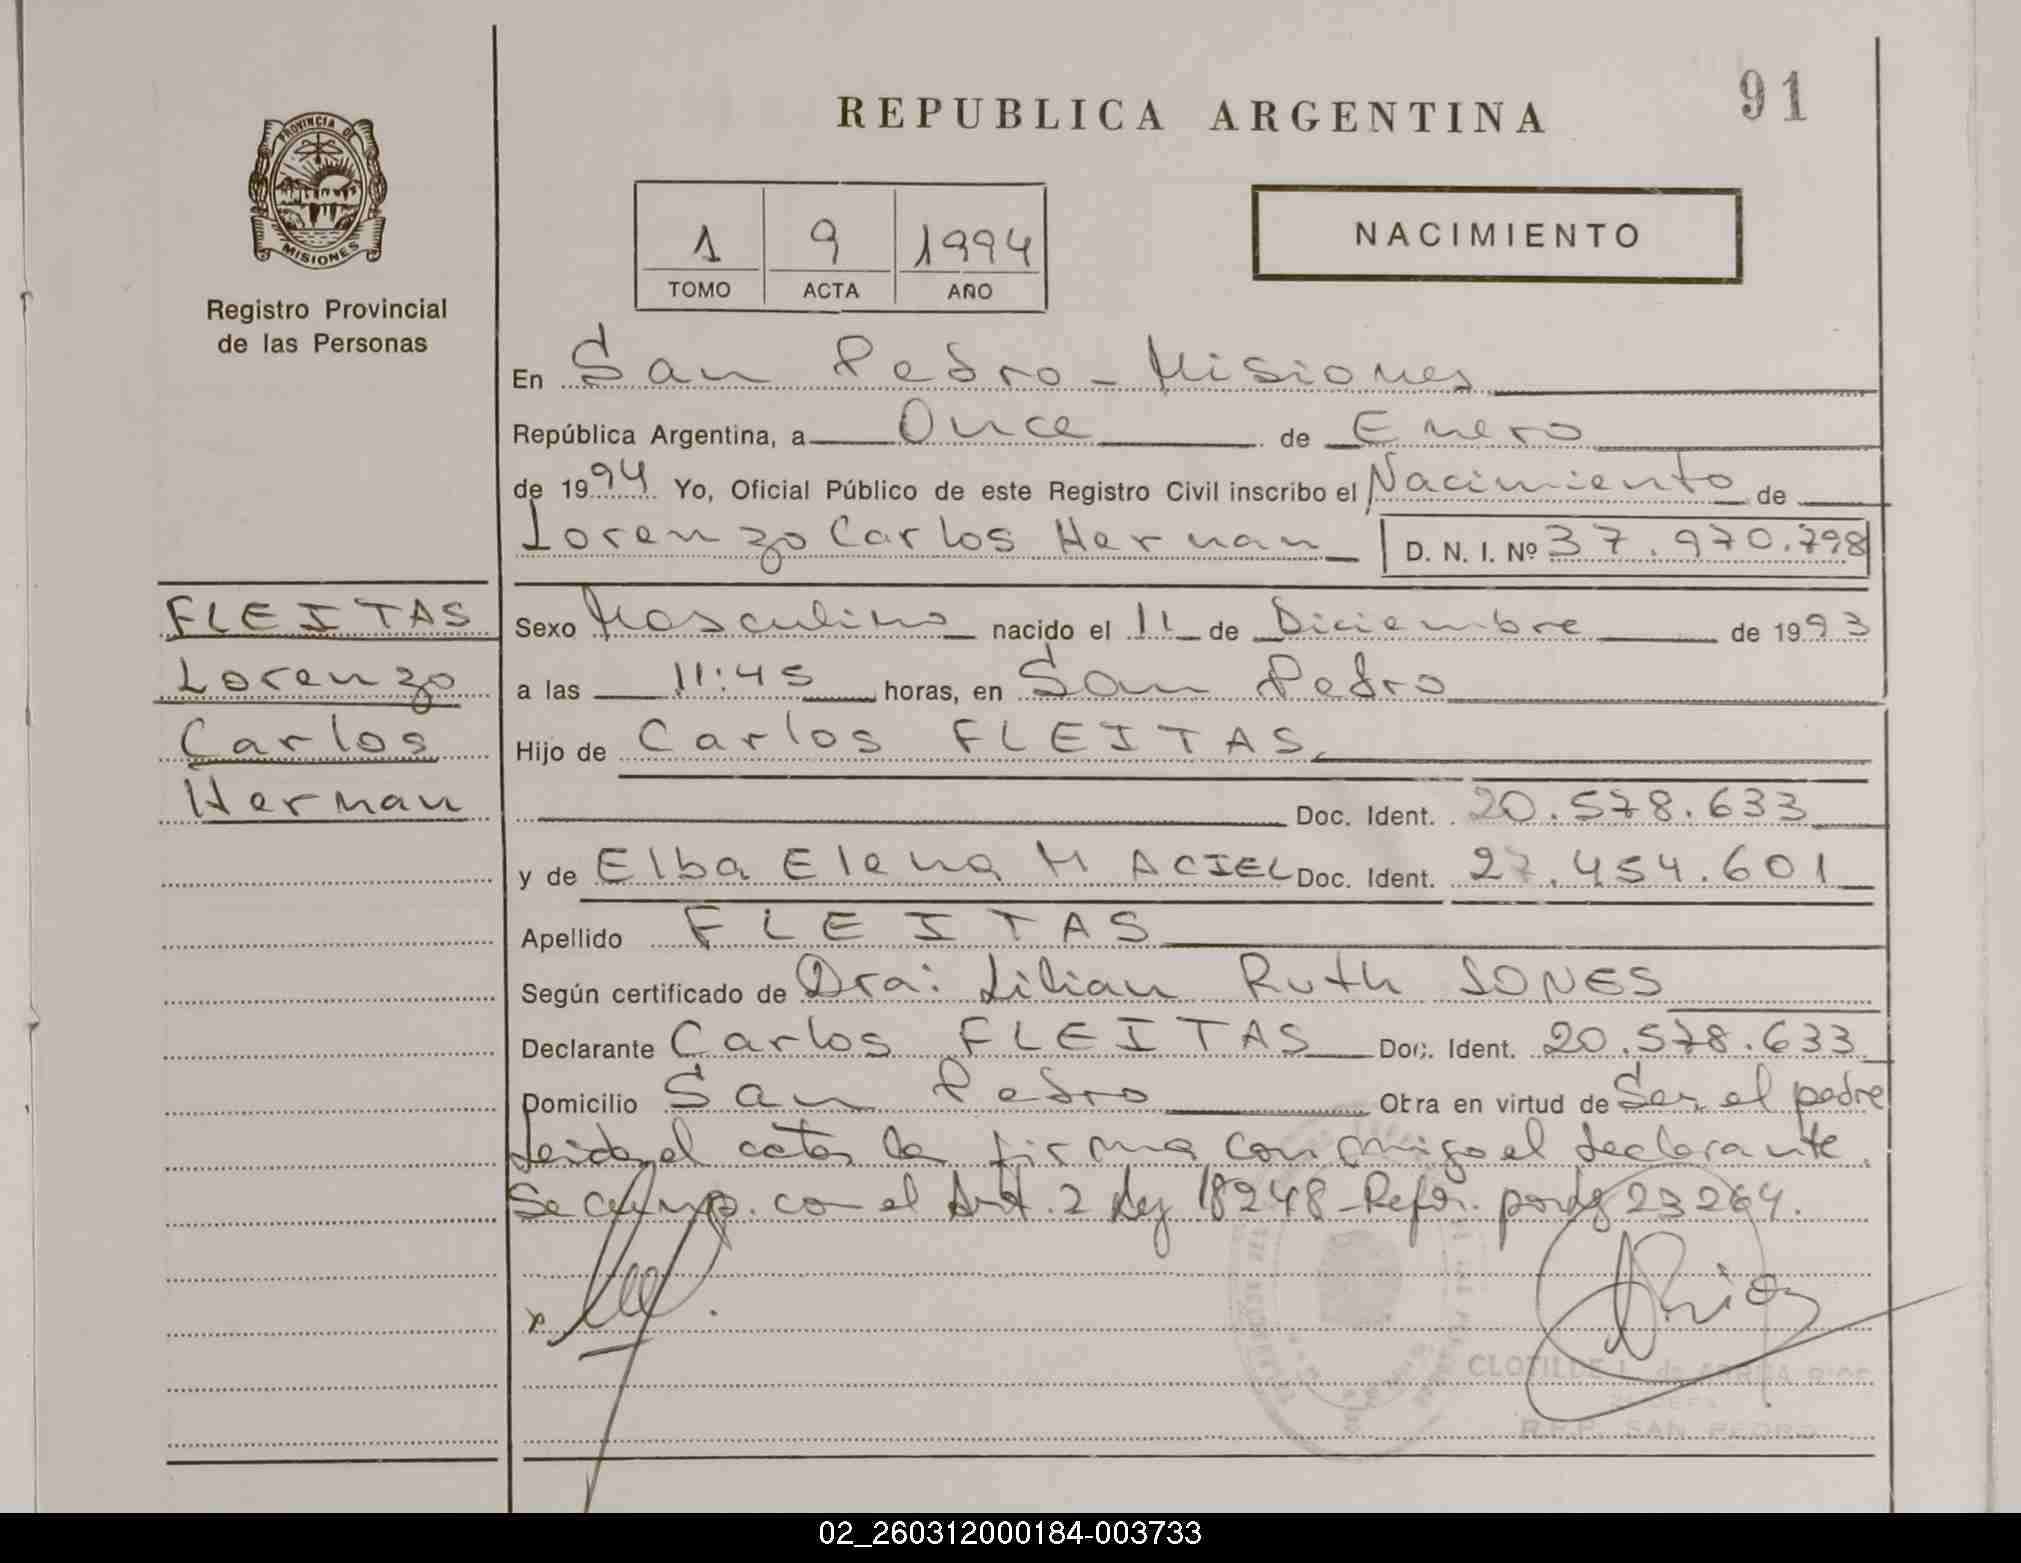 REPUBLICA ARGENTINA
91
PROVINCIA DE
MISIONES
Registro Provincial
de las Personas
1 9 1994
TOMO ACTA AÑO
NACIMIENTO
En San Pedro - Misiones
República Argentina, a Once de Enero
de 1994 Yo, Oficial Público de este Registro Civil inscribo el Nacimiento de
Lorenzo Carlos Hernan D. N. I. Nº 37.970.798
FLEITAS
Lorenzo
Carlos
Hernan
Sexo Masculino nacido el 11 de Diciembre de 1993
a las 11:45 horas, en San Pedro
Hijo de Carlos FLEITAS
Doc. Ident. 20.578.633
y de Elba Elena MACIEL Doc. Ident. 27.454.601
Apellido FLEITAS
Según certificado de Dra: Lilian Ruth JONES
Declarante Carlos FLEITAS Doc. Ident. 20.578.633
Domicilio San Pedro Obra en virtud de Ser el padre
Leida el acta la firma conmigo el declarante.
Se cump. con el Art. 2 Ley 18248 - Refor. por 23264.
x
Rios
CLOTILDE L. de RIOS
R.P.P. SAN PEDRO
02_260312000184-003733